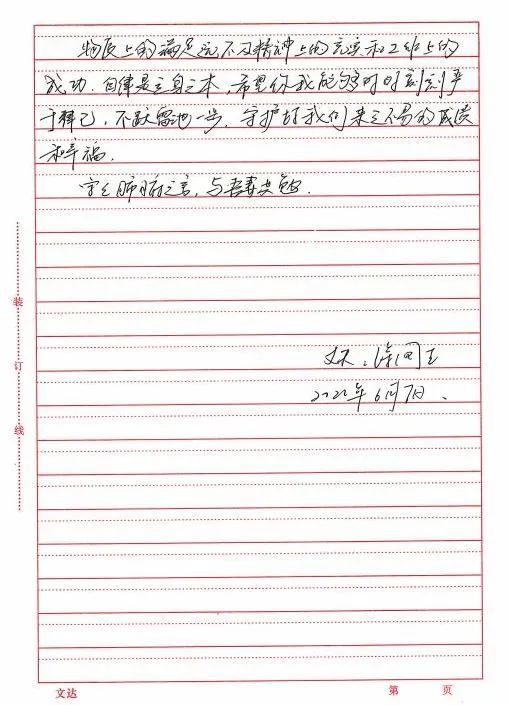 物质上的满足远不及精神上的充实和工作上的
成功。自律是立身之本,希望你我能够时时刻刻严
于律己,不越雷池一步,守护好我们来之不易的成绩
和幸福。
字乞肺腑之言,与吾妻共勉。
丈夫:
2022年6月7日.
装
订
线
文达
第 页